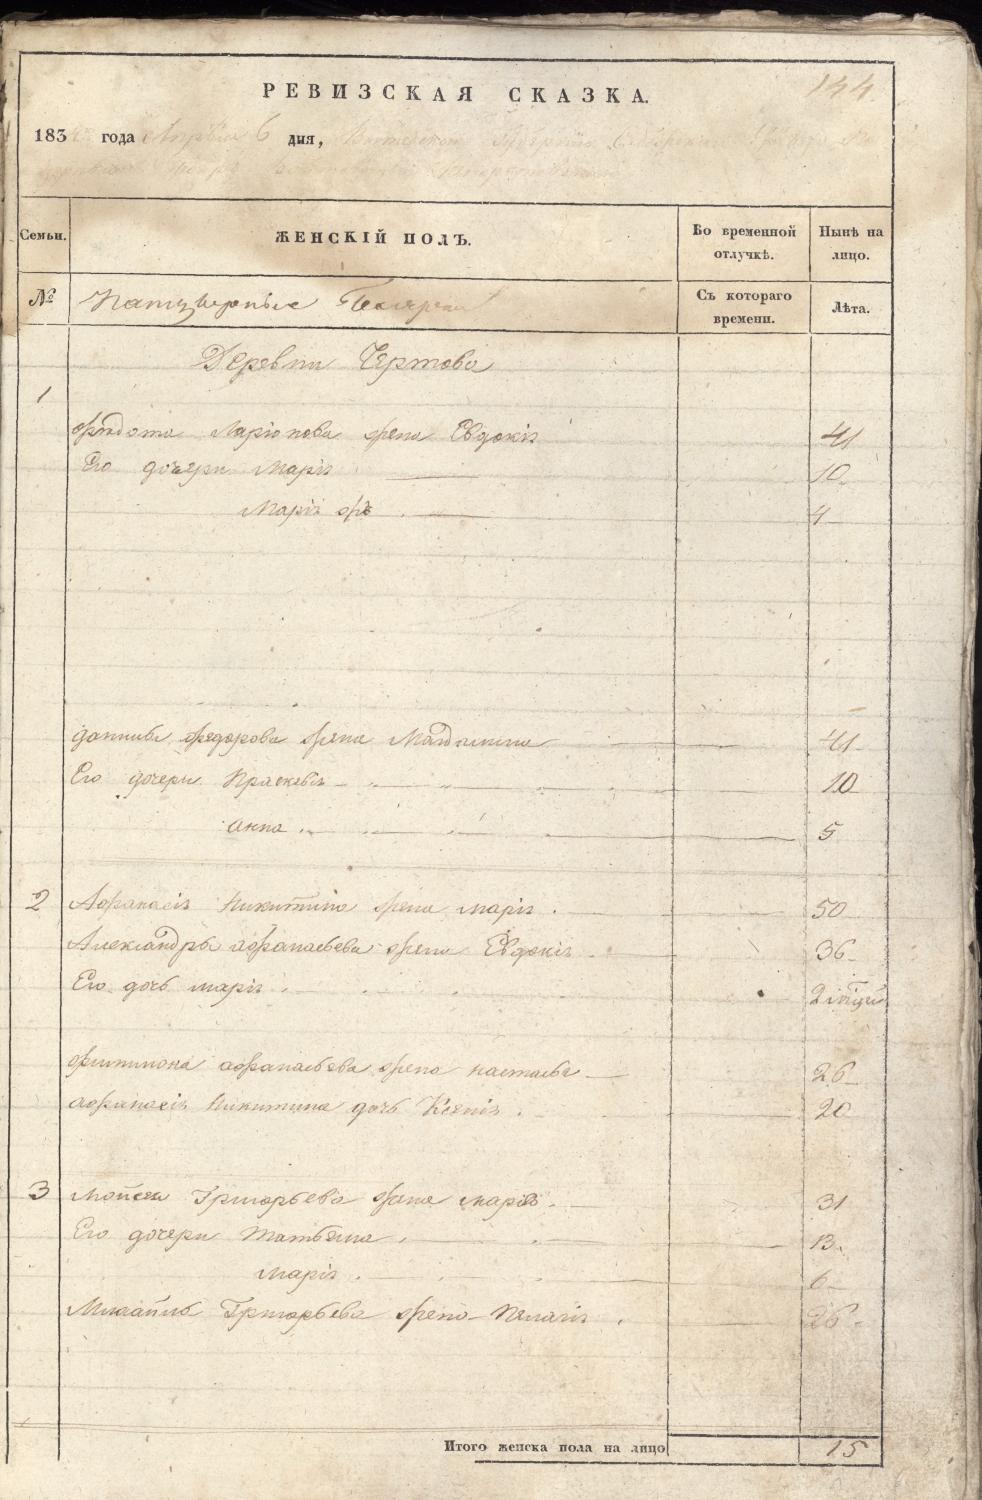 144.
РЕВИЗСКАЯ СКАЗКА.
1834 года Апреля 6 дня, Вятской Губернии
Семьи. ЖЕНСКІЙ ПОЛЪ. Во временной отлучкѣ. Нынѣ на лицо.
№ Съ котораго времени. Лѣта.
Деревни Чертова
1
Федота Ларіонова жена Евдокія 41
Его дочери Марія 10
Марія же 4
Данила Федорова жена 41
Его дочери Праскевія 10
Анна 5
2 Афанасія Никитина жена Марія 50
Александры Афанасьева жена Евдокія 36
Его дочь Марія 2
Филимона Афанасьева жена Настасья 26
Афанасія Никитина дочь Ксенія 20
3 Мойсея Григорьева жена Марія 31
Его дочери Татьяна 13
Марія 6
Михайлы Григорьева жена Пелагія 26
Итого женска пола на лицо 15